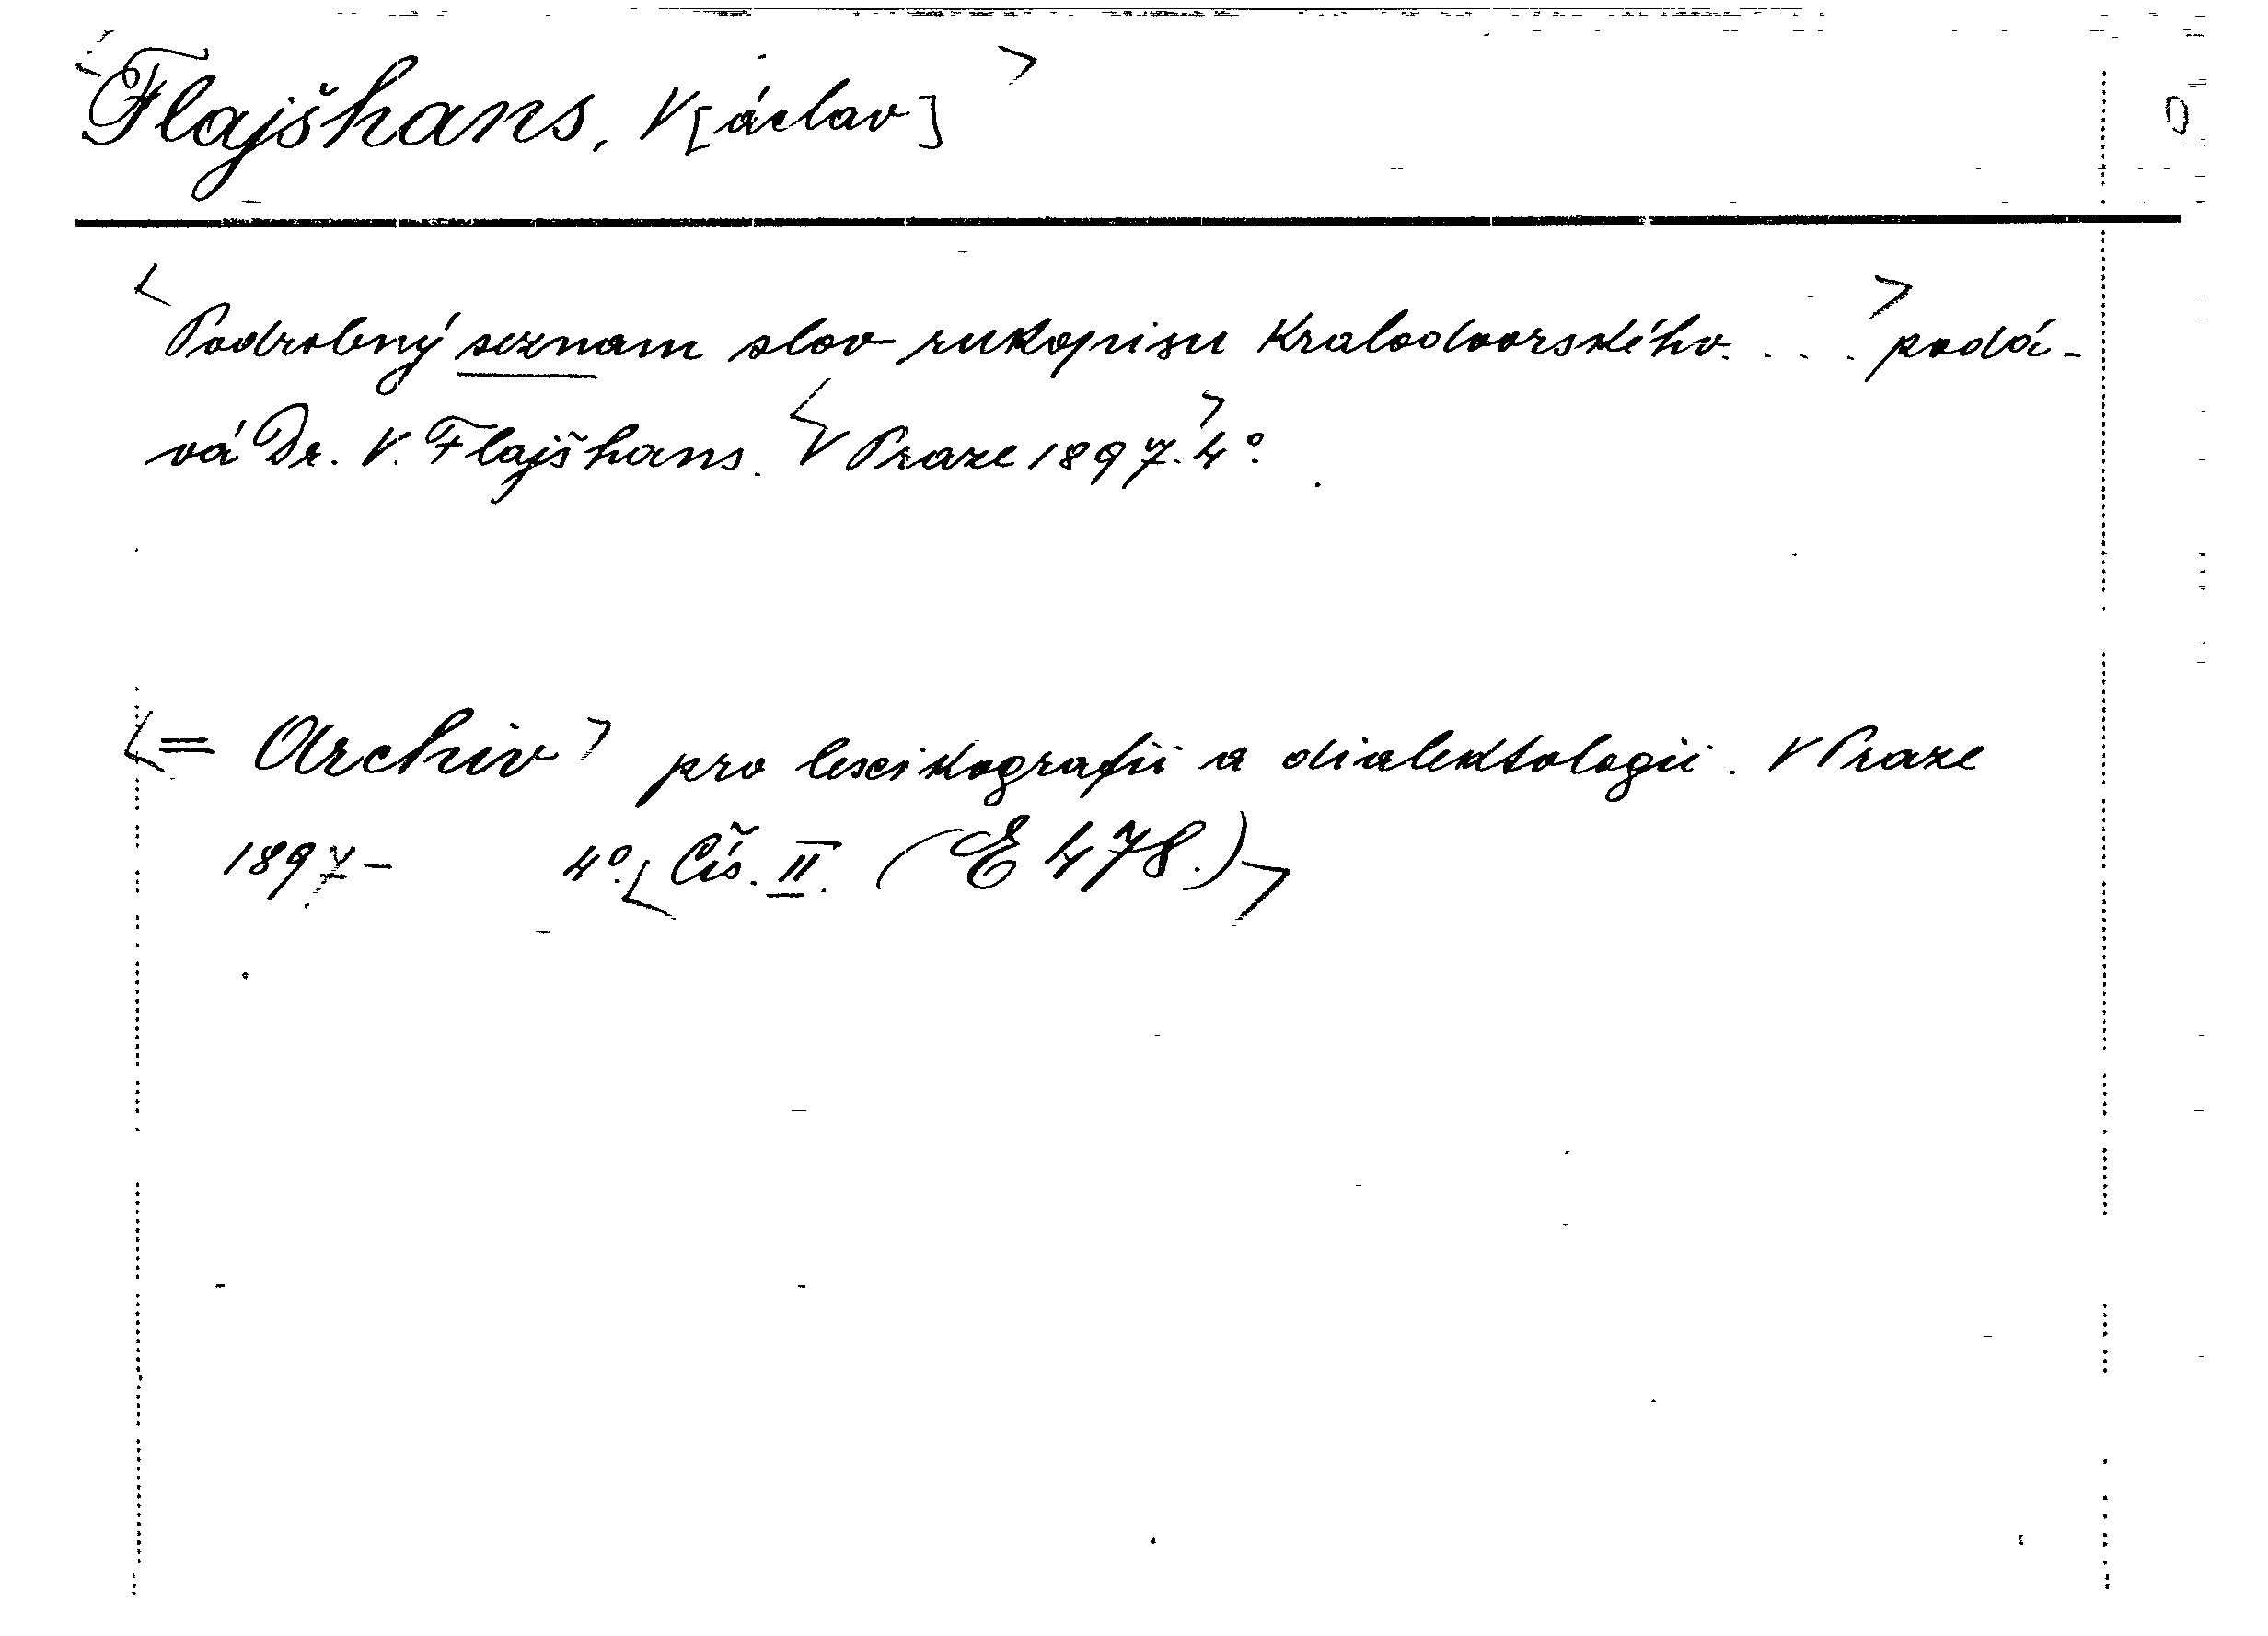 <Flajšhans, V[áclav]>
<Podrobný seznam slov rukopisu Kralodvorského. . . .> podá-
vá Dr. V. Flajšhans. <V Praze 1897.> 4°.
<= Archiv> pro lexikografii a dialektologii. V Praze
1897- 4°. <Čís. II. (E 478.)>